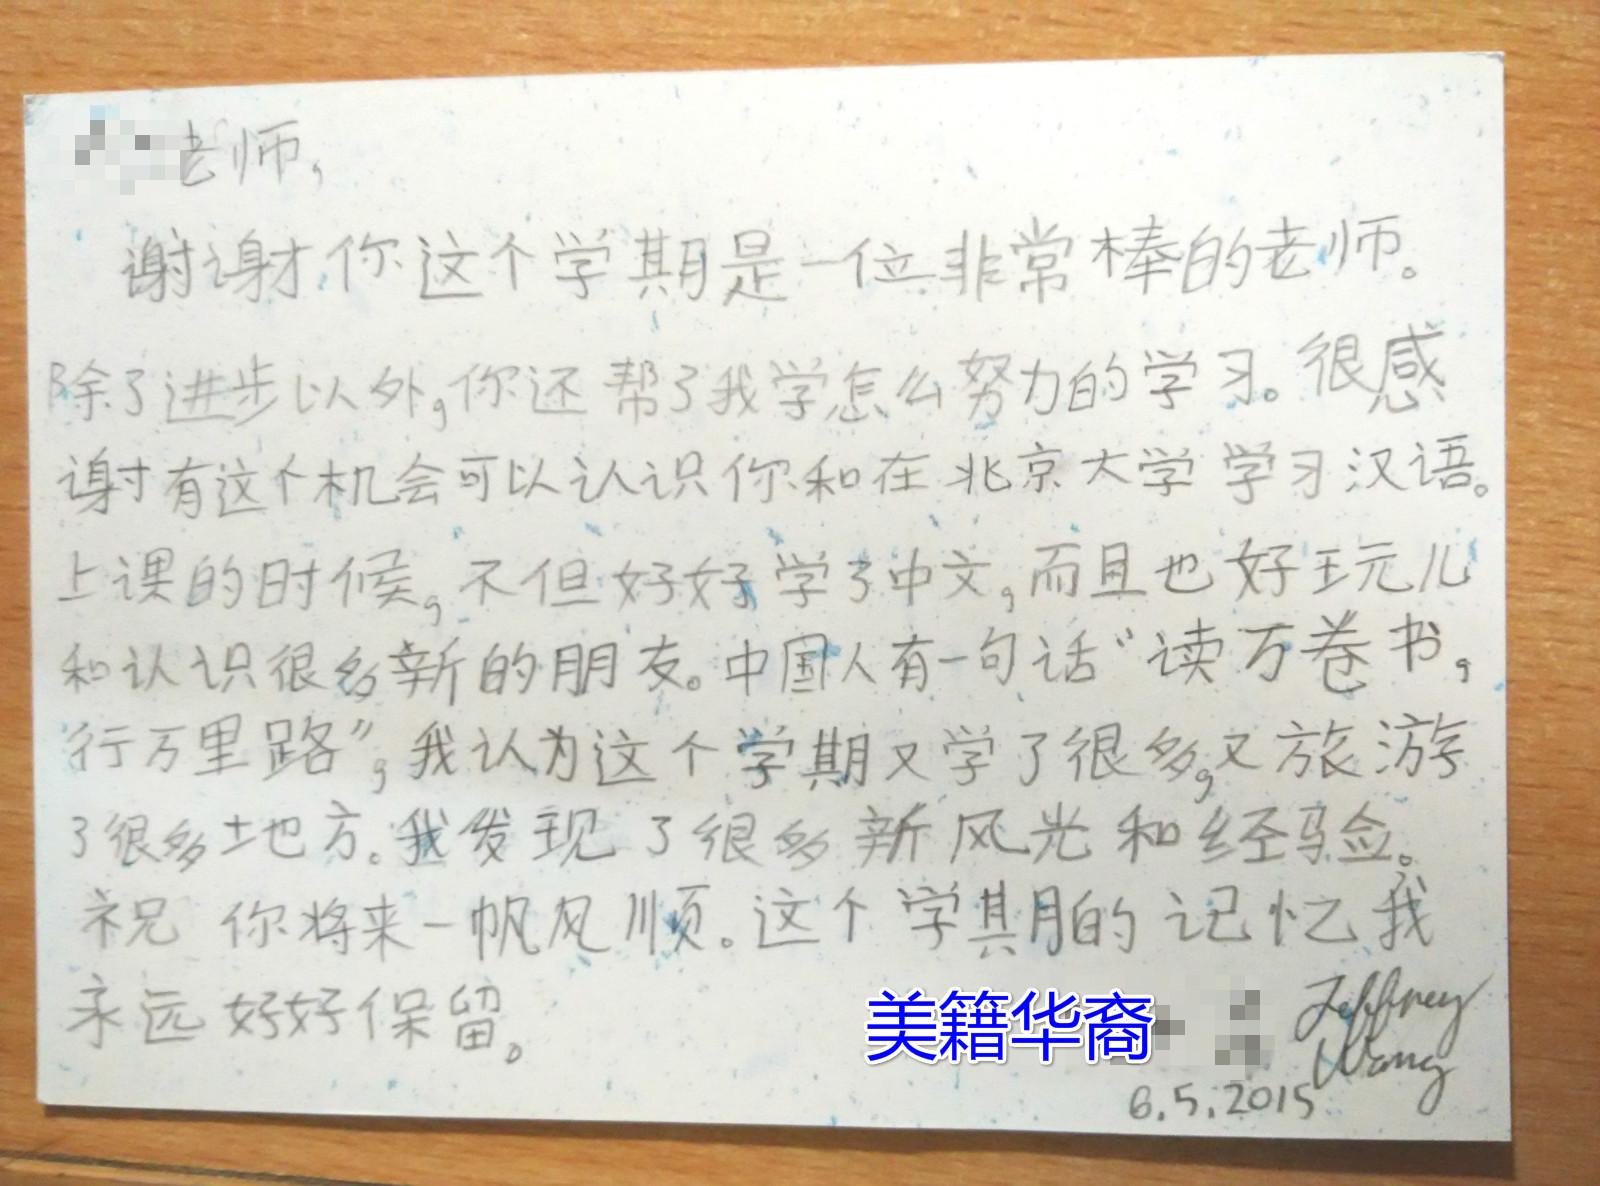 老师,
谢谢你这个学期是一位非常棒的老师。
除了进步以外,你还帮了我学怎么努力的学习。很感
谢有这个机会可以认识你和在北京大学学习汉语。
上课的时候,不但好好学了中文,而且也好玩儿
和认识很多新的朋友。中国人有一句话“读万卷书,
行万里路”,我认为这个学期又学了很多,又旅游
了很多地方。我发现了很多新风光和经验。
祝你将来一帆风顺。这个学期的记忆我
永远好好保留。
美籍华裔
Jeffrey
Wang
6.5.2015